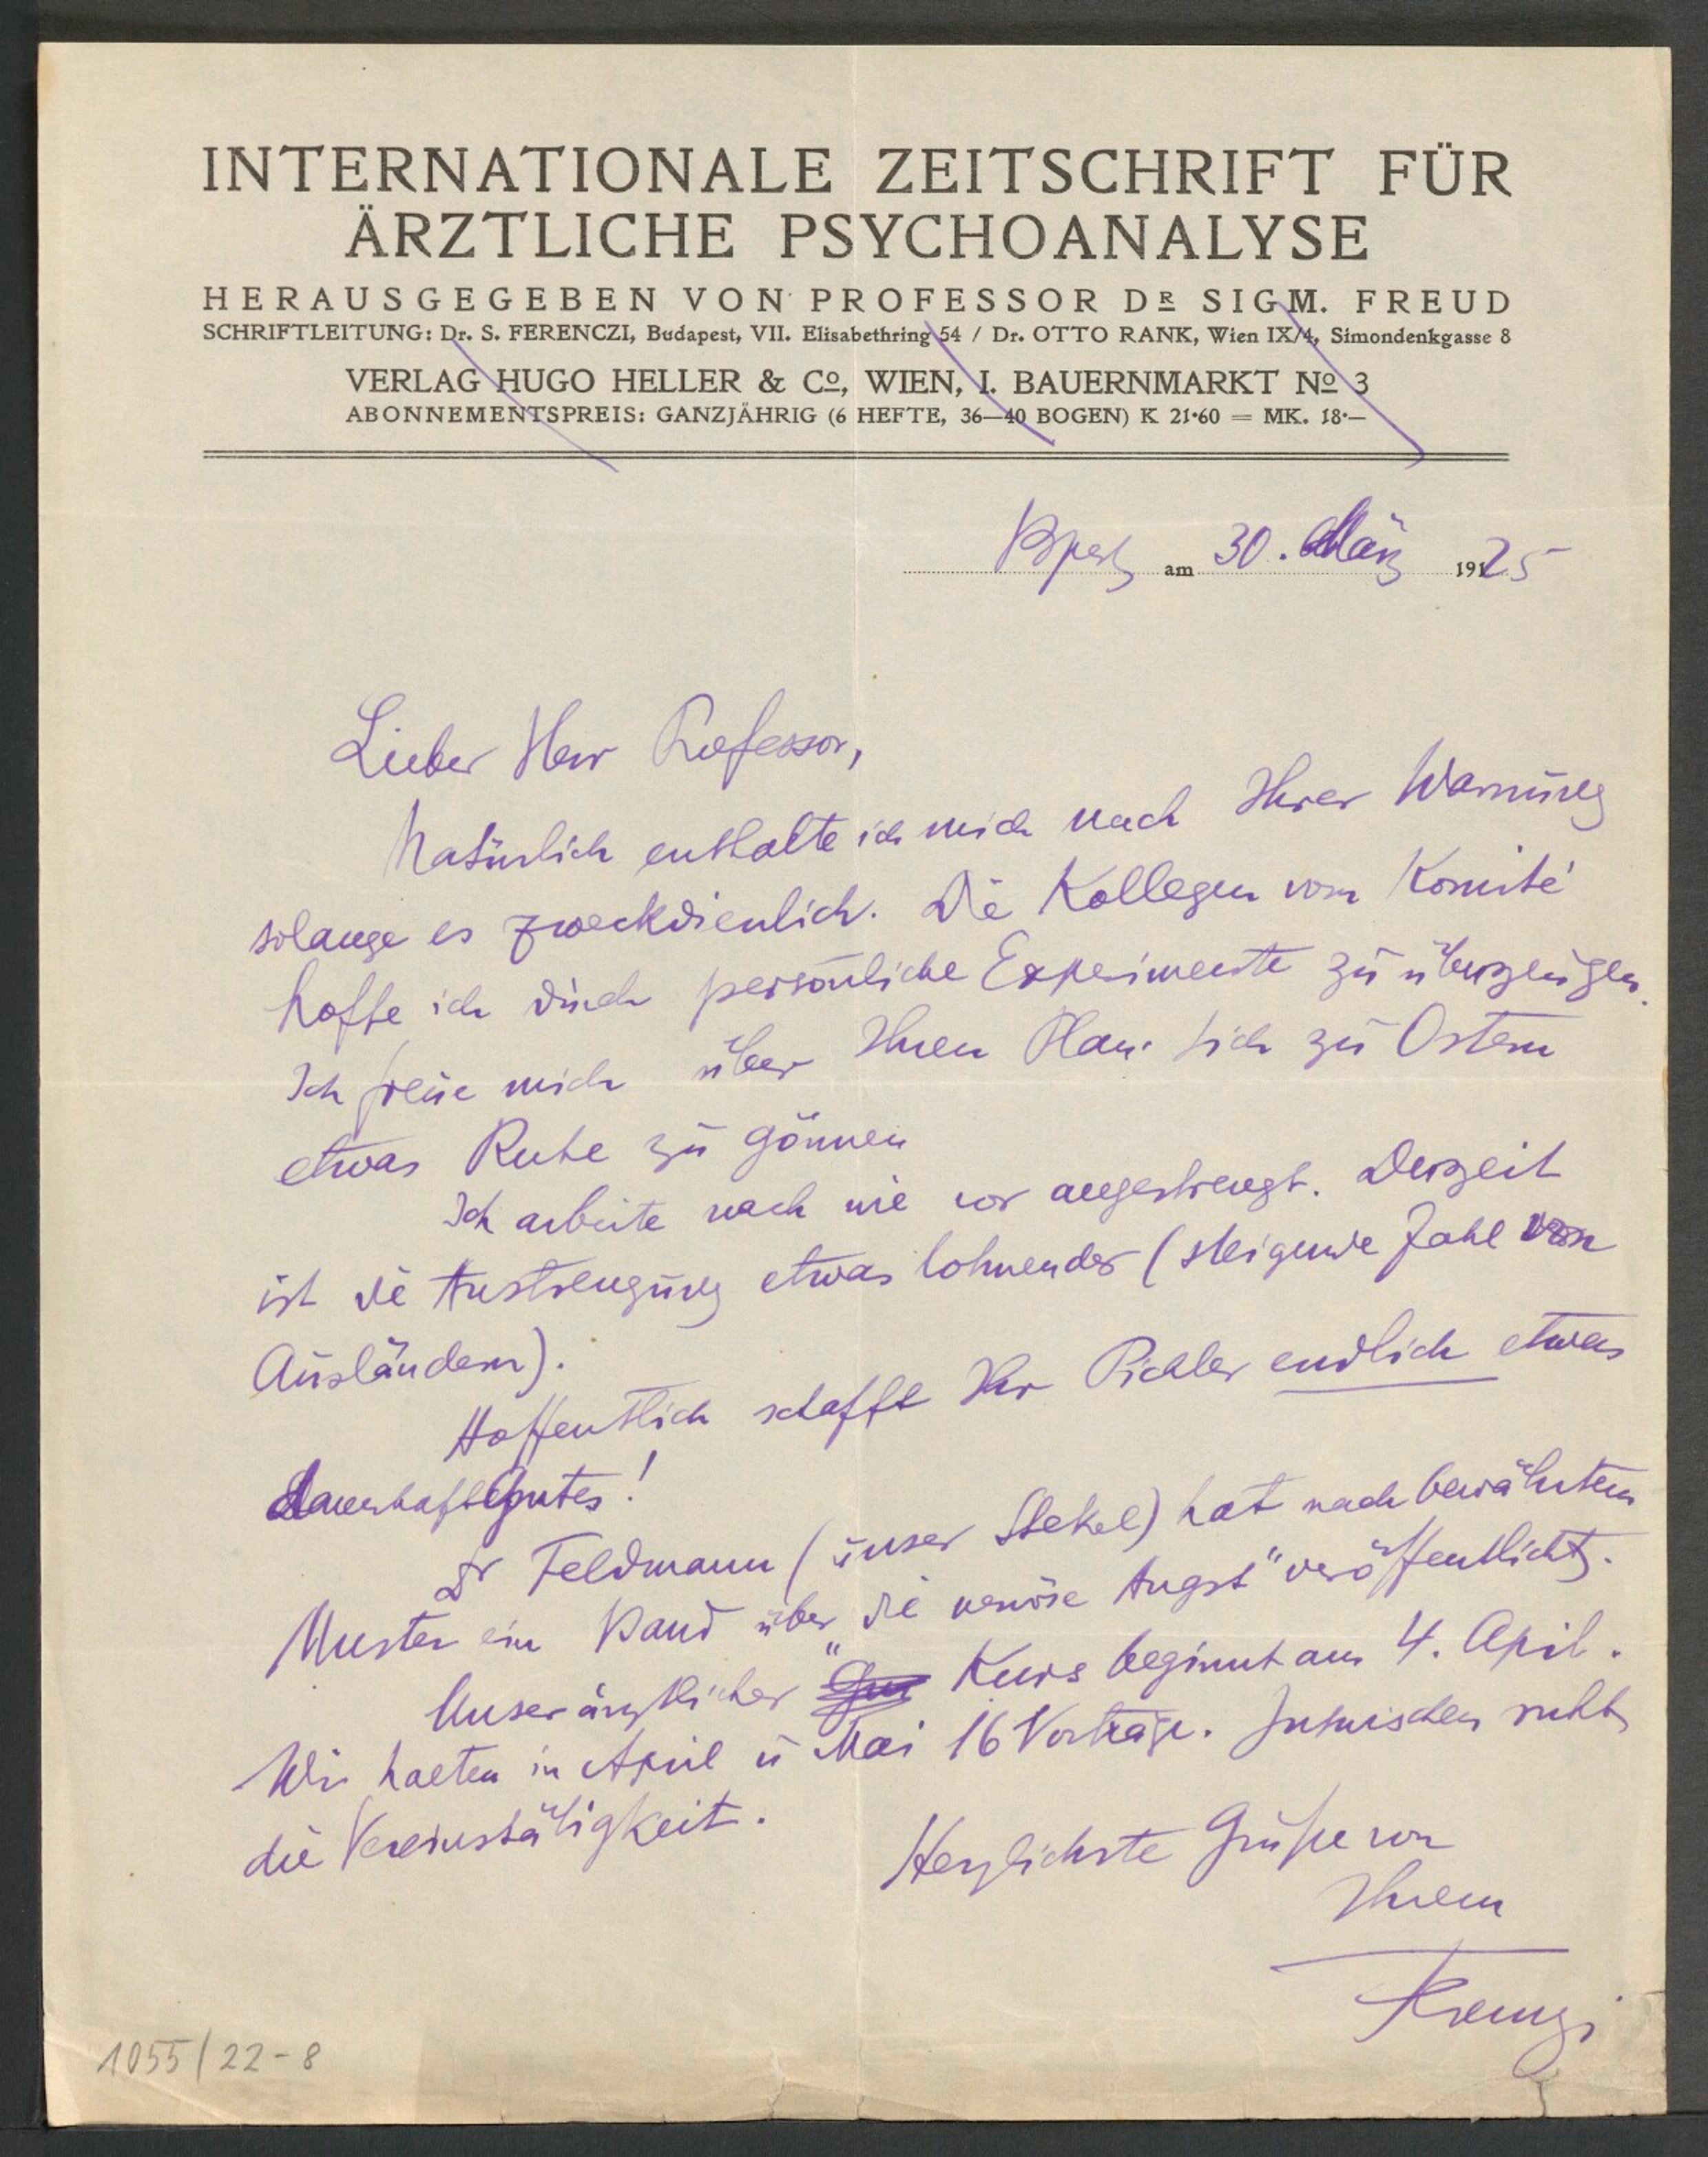 INTERNATIONALE ZEITSCHRIFT FÜR
ÄRZTLICHE PSYCHOANALYSE
HERAUSGEGEBEN VON PROFESSOR DR SIGM. FREUD
SCHRIFTLEITUNG: Dr. S. FERENCZI, Budapest, VII. Elisabethring 54 / Dr. OTTO RANK, Wien IX/4, Simondenkgasse 8
VERLAG HUGO HELLER & Co, WIEN, I. BAUERNMARKT No 3
ABONNEMENTSPREIS: GANZJÄHRIG (6 HEFTE, 36—40 BOGEN) K 21·60 = MK. 18·—
Bpest, am 30. März 1925
Lieber Herr Professor,
Natürlich enthalte ich mich nach Ihrer Warnung
solange es zweckdienlich. Die Kollegen vom Komité
hoffe ich durch persönliche Experimente zu überzeugen.
Ich freue mich über Ihren Plan sich zu Ostern
etwas Ruhe zu gönnen
Ich arbeite nach wie vor angestrengt. Derzeit
ist die Anstrengung etwas lohnender (steigende Zahl von
Ausländern).
Hoffentlich schafft Ihr Pichler endlich etwas
dauerhaft Gutes!
Dr Feldmann (unser Stekel) hat nach bewährtem
Muster ein Band über „die nervöse Angst“ veröffentlicht.
Unser ärztlicher Kurs beginnt am 4. April.
Wir halten in April u Mai 16 Vorträge. Inzwischen ruht
die Vereinstätigkeit.
Herzlichste Grüße von
Ihrem
Ferenczi
1055/22-8